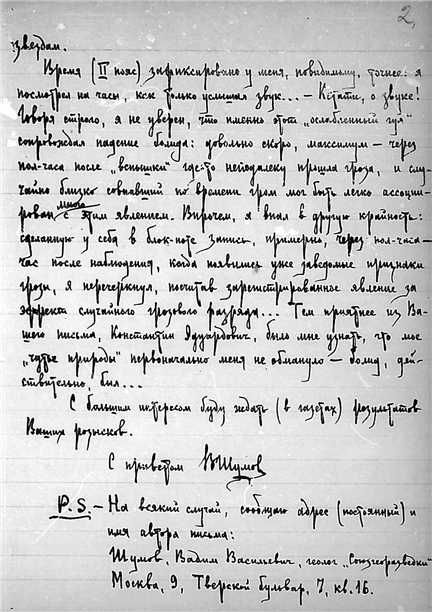 2,
звездам.
Время (II пояс) зафиксировано у меня, повидимому, точнее: я
посмотрел на часы, как только услышал звук... — Кстати, о звуке!
Говоря строго, я не уверен, что именно этот „ослабленный гул"
сопровождал падение болида: довольно скоро, максимум — через
пол-часа после „вспышки" где-то неподалеку прошла гроза, и слу-
чайно близко совпавший по времени гром мог быть легко ассоции-
рован мною с этим явлением. Впрочем, я впал в другую крайность:
сделанную у себя в блок-ноте запись, примерно, через пол-часа —
час после наблюдения, когда появились уже заведомые признаки
грозы, я перечеркнул, посчитав зарегистрированное явление за
эффект случайного грозового разряда... Тем приятнее из Ва-
шего письма, Константин Эдуардович, было мне узнать, что мое
„чутье природы" первоначально меня не обмануло — болид, дей-
ствительно, был...
С большим интересом буду ждать (в газетах) результатов
Ваших розысков.
С приветом ВШумов
P.S. — На всякий случай, сообщаю адрес (постоянный) и
имя автора письма:
Шумов, Вадим Васильевич, геолог „Союзгеоразведки"
Москва, 9, Тверской бульвар, 7, кв. 16.